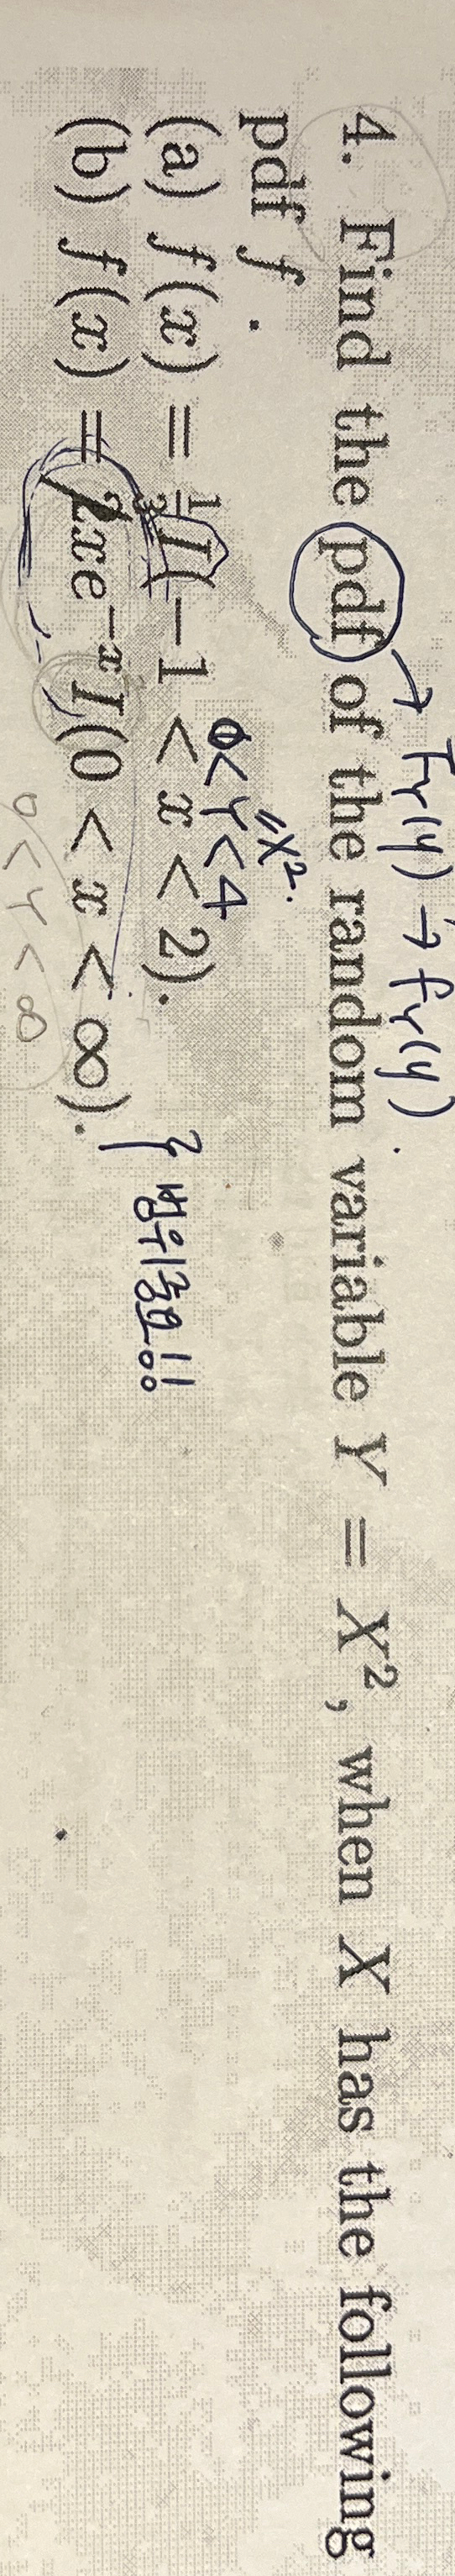 → F_Y(y) → f_Y(y).
4. Find the pdf of the random variable Y = X², when X has the following
pdf f.
0<Y<4
=X².
(a) f(x) = ⅓I(−1 < x < 2).
(b) f(x) = 2xe^{−x}I(0 < x < ∞).
} 범위중요!!
0 < Y < ∞